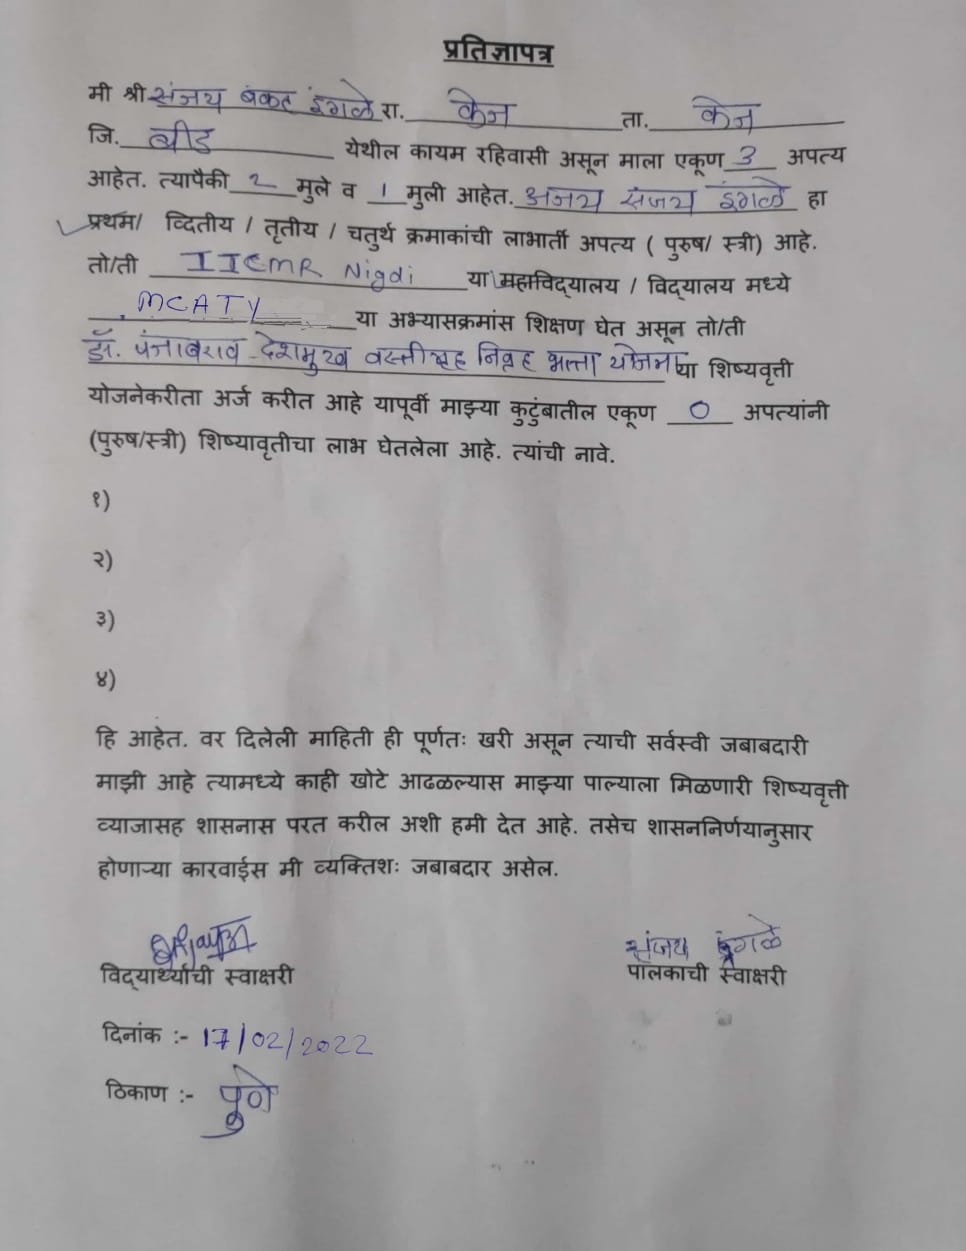 प्रतिज्ञापत्र
मी श्री संजय बंकट इंगळे रा. केज ता. केज
जि. बीड येथील कायम रहिवासी असून माला एकूण 3 अपत्य
आहेत. त्यापैकी 2 मुले व 1 मुली आहेत. अजय संजय इंगळे हा
प्रथम/ व्दितीय / तृतीय / चतुर्थ क्रमाकांची लाभार्ती अपत्य ( पुरुष/ स्त्री) आहे.
तो/ती IICMR Nigdi या महाविद्यालय / विद्यालय मध्ये
MCA TY या अभ्यासक्रमांस शिक्षण घेत असून तो/ती
डॉ. पंजाबराव देशमुख वस्तीगृह निवृह भत्ता योजना या शिष्यवृत्ती
योजनेकरीता अर्ज करीत आहे यापूर्वी माझ्या कुटुंबातील एकूण 0 अपत्यांनी
(पुरुष/स्त्री) शिष्यावृतीचा लाभ घेतलेला आहे. त्यांची नावे.
१)
२)
३)
४)
हि आहेत. वर दिलेली माहिती ही पूर्णतः खरी असून त्याची सर्वस्वी जबाबदारी
माझी आहे त्यामध्ये काही खोटे आढळल्यास माझ्या पाल्याला मिळणारी शिष्यवृत्ती
व्याजासह शासनास परत करील अशी हमी देत आहे. तसेच शासननिर्णयानुसार
होणाऱ्या कारवाईस मी व्यक्तिशः जबाबदार असेल.
संजय इंगळे
विद्यार्थ्याची स्वाक्षरी पालकाची स्वाक्षरी
दिनांक :- 17/02/2022
ठिकाण :- पुणे